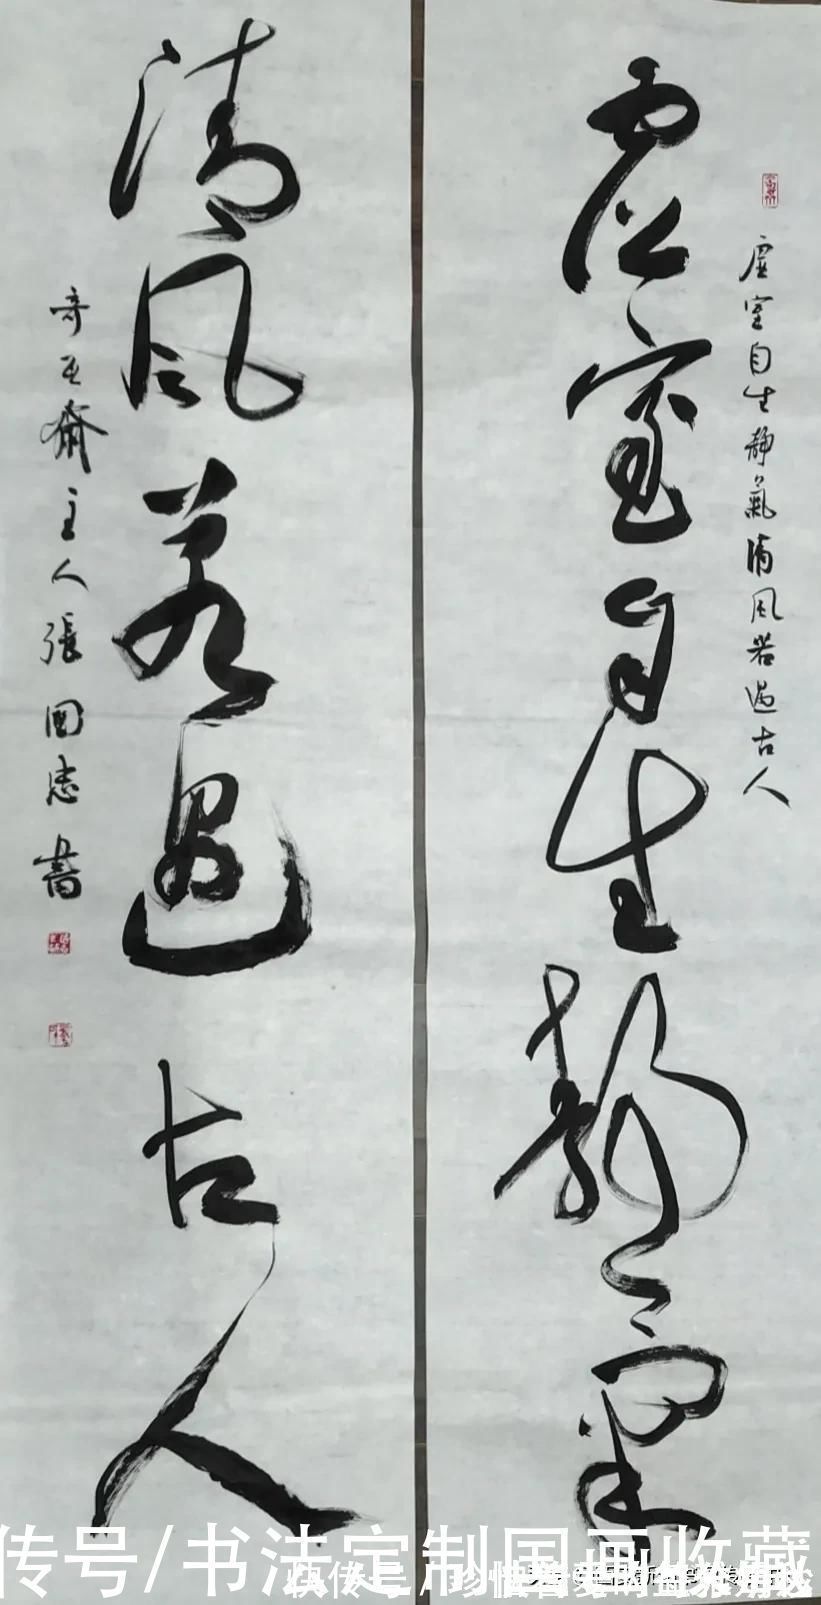 虚室自生静氣
虚室自生静氣清风若遇古人
清风若遇古人
齋主人張國志書
传号/书法定制国画收藏
快传号/珍惜